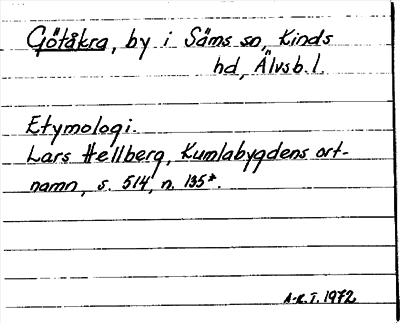 Götåkra, by i Säms sn, Kinds
hd, Älvsb. l.
Etymologi.
Lars Hellberg, Kumlabygdens ort-
namn, s. 514, n. 135*.
A-R. T. 1972